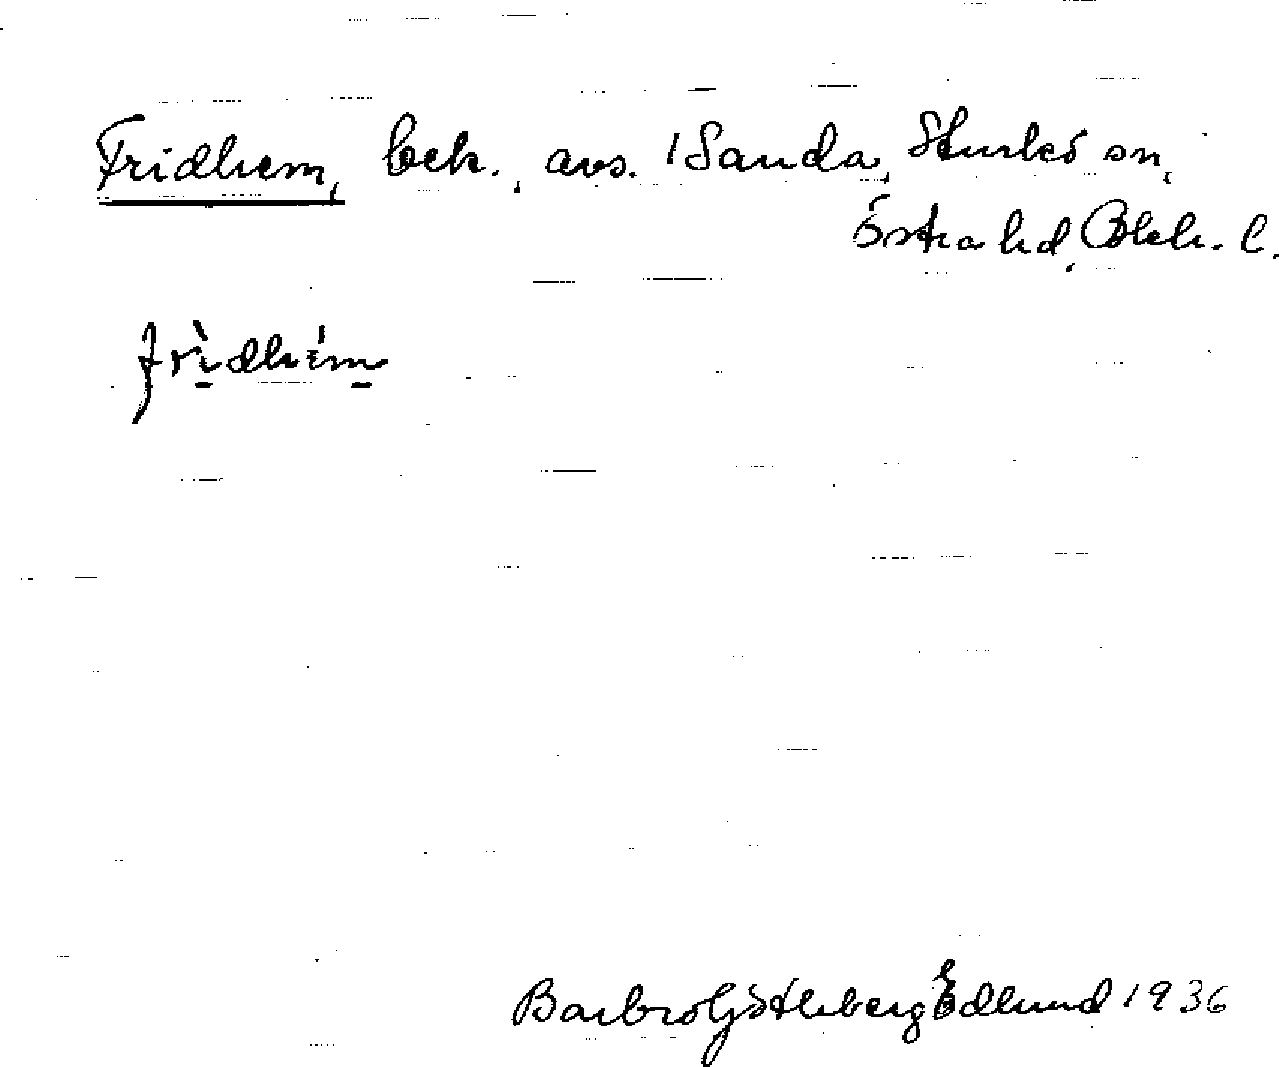 Fridhem, beb., avs. 1 Sanda, Sturkö sn,
Östra hd, Blek. l.
frìdhém
Barbro Götleberg Edlund 1936